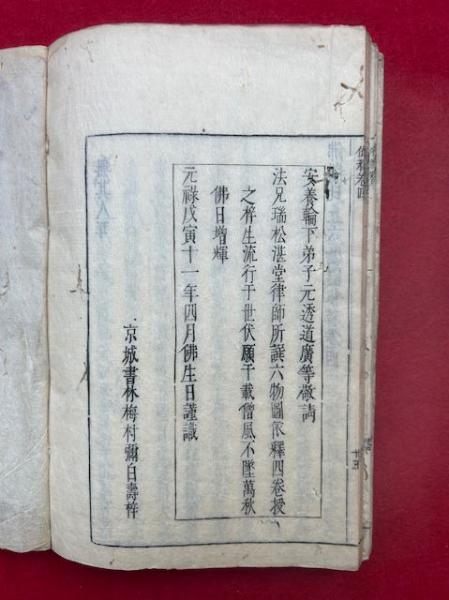 安養輪下弟子元透道廣等敬請
法兄瑞松湛堂律師所譔六物圖依釋四卷授
之梓生流行于世伏願千載僧風不墜萬秋
佛日增輝
元祿戊寅十一年四月佛生日謹識
京城書林梅村彌白壽梓
十五